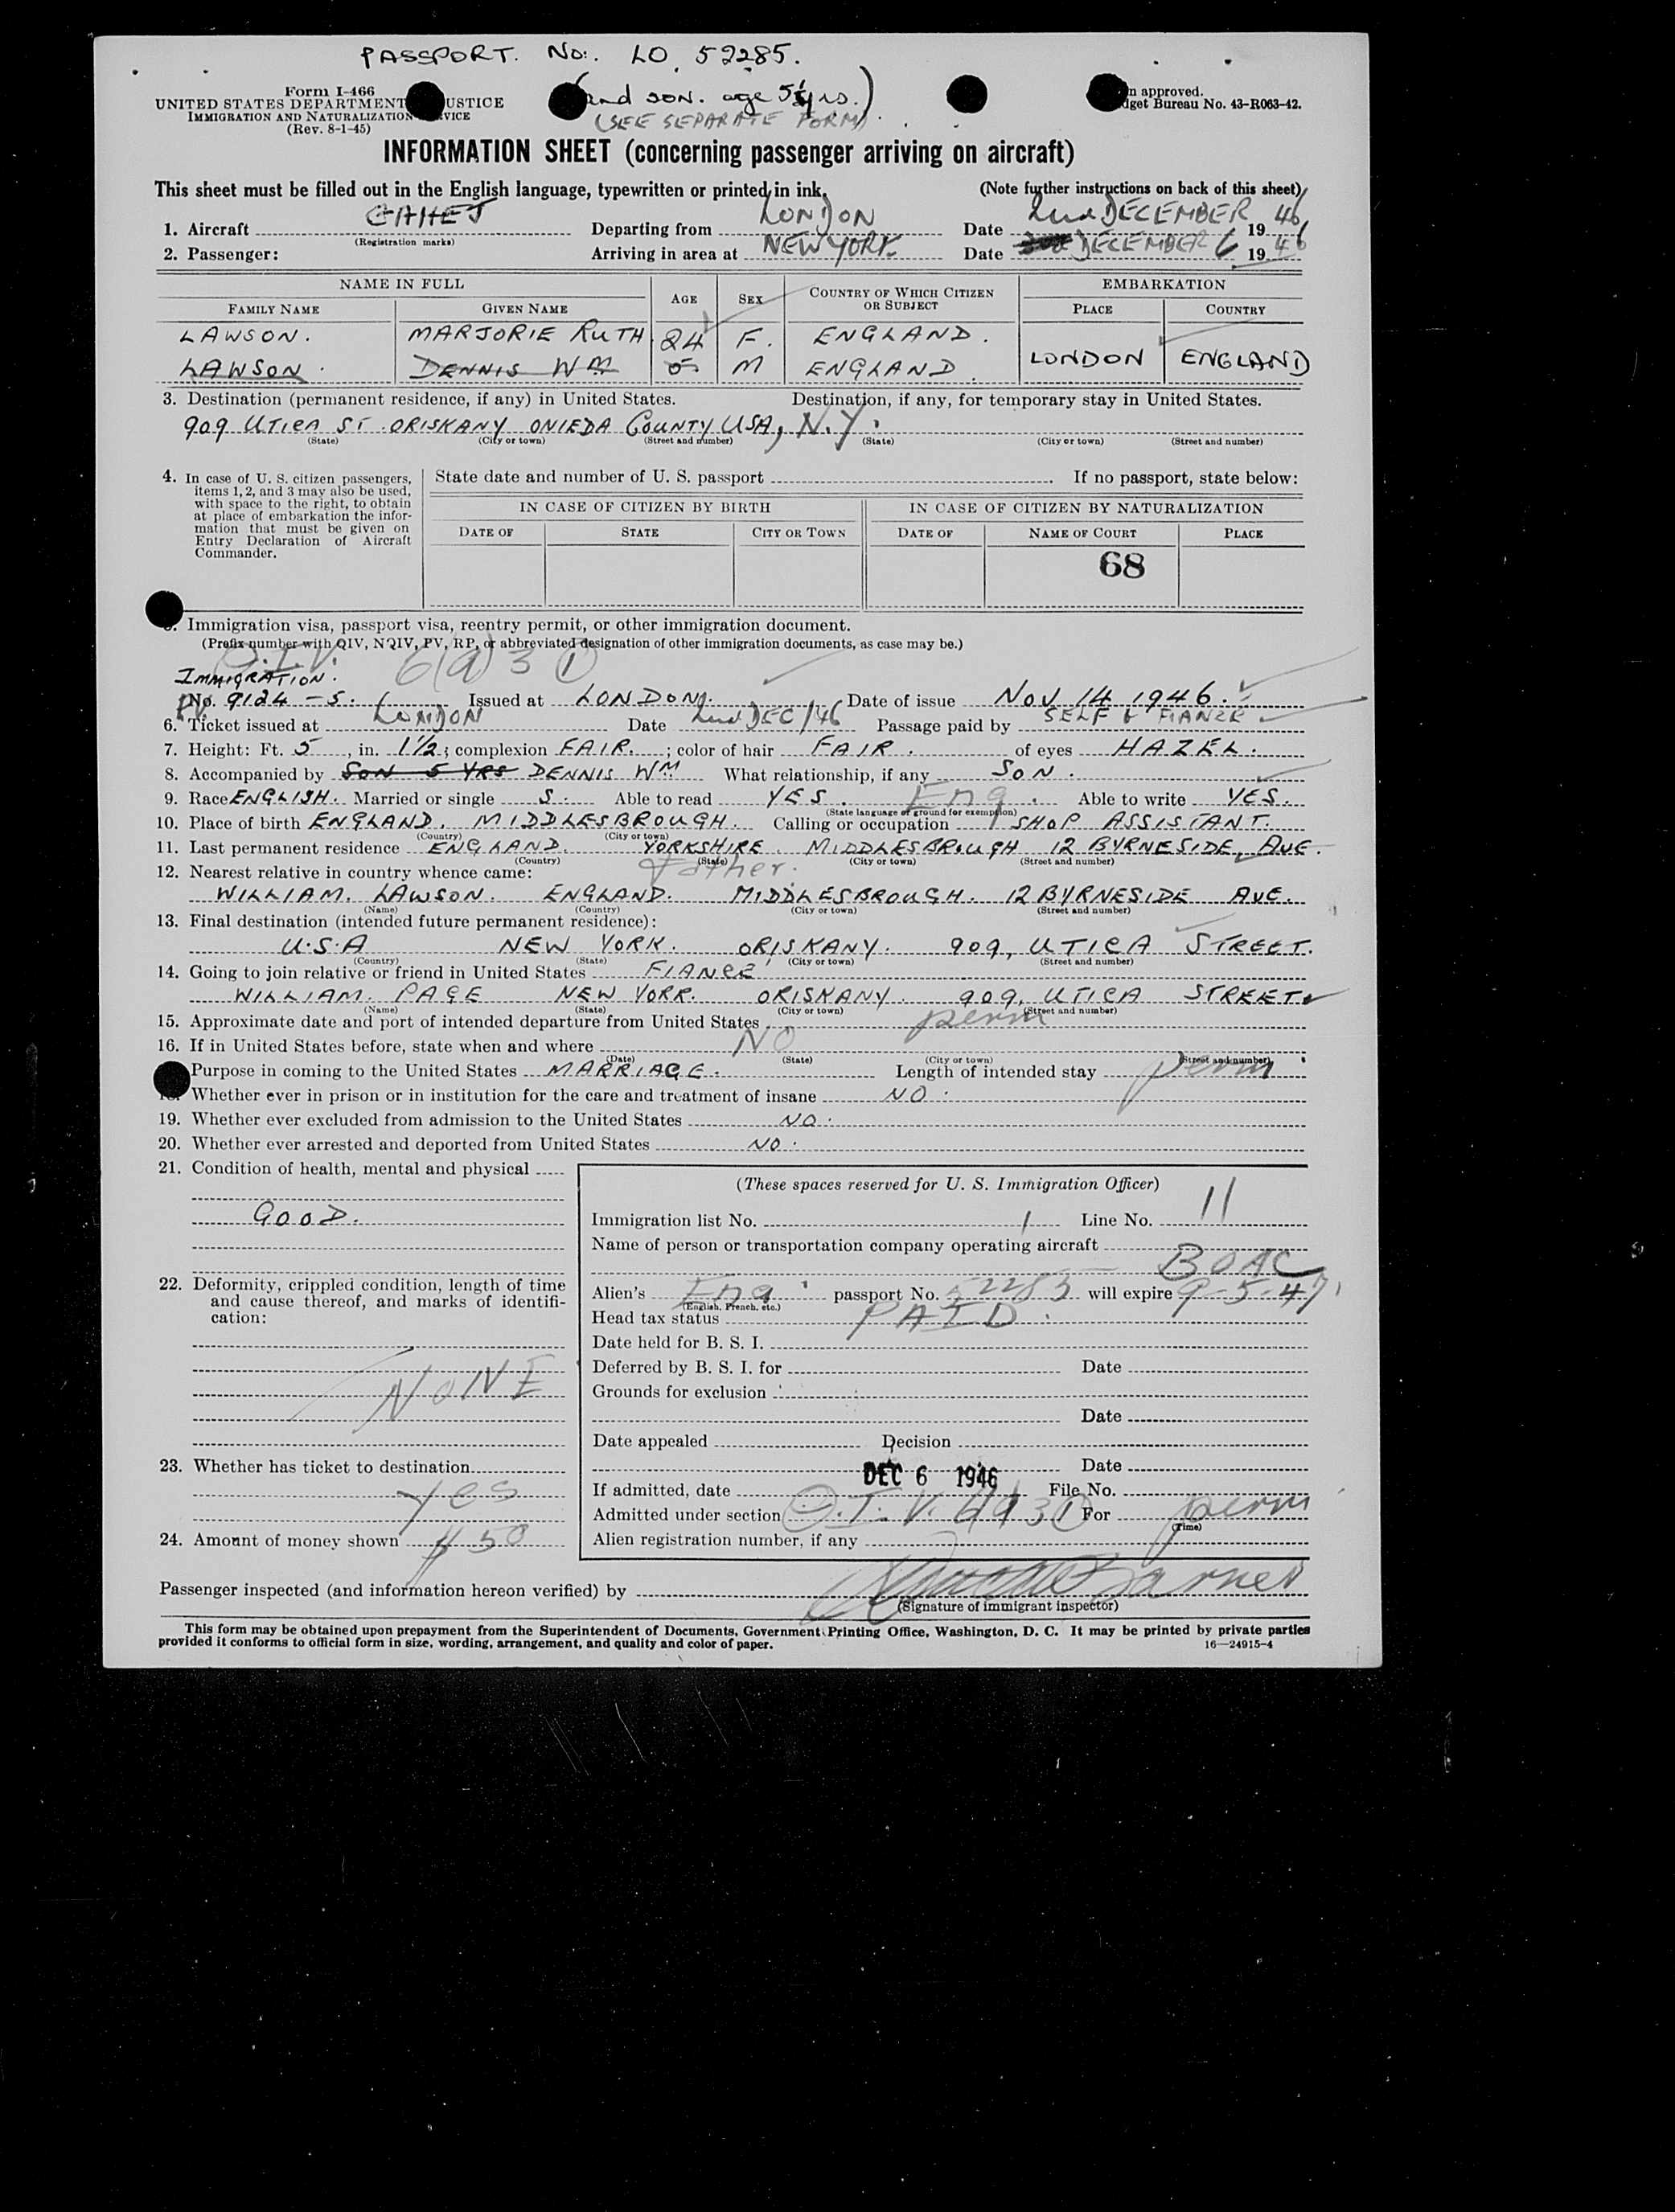 PASSPORT. No:. LO. 52285.
Form I-466
UNITED STATES DEPARTMENT JUSTICE
IMMIGRATION AND NATURALIZATION SERVICE
(Rev. 8-1-45)
(and son. age 5¼ yrs.)
(SEE SEPARATE FORM).
approved.
Budget Bureau No. 43-R063-42.
INFORMATION SHEET (concerning passenger arriving on aircraft)
This sheet must be filled out in the English language, typewritten or printed in ink. (Note further instructions on back of this sheet)
1. Aircraft GAHEJ Departing from LONDON Date 2nd DECEMBER 1946
(Registration marks)
2. Passenger: Arriving in area at NEW YORK Date DECEMBER 6 1946
NAME IN FULL AGE SEX COUNTRY OF WHICH CITIZEN OR SUBJECT EMBARKATION
FAMILY NAME GIVEN NAME PLACE COUNTRY
LAWSON. MARJORIE RUTH 24 F. ENGLAND.
LAWSON. DENNIS WM 5 M ENGLAND. LONDON ENGLAND
3. Destination (permanent residence, if any) in United States. Destination, if any, for temporary stay in United States.
909 UTICA ST. ORISKANY ONIEDA COUNTY USA, N.Y.
(State) (City or town) (Street and number) (State) (City or town) (Street and number)
4. In case of U. S. citizen passengers, items 1, 2, and 3 may also be used, with space to the right, to obtain at place of embarkation the information that must be given on Entry Declaration of Aircraft Commander.
State date and number of U. S. passport If no passport, state below:
IN CASE OF CITIZEN BY BIRTH IN CASE OF CITIZEN BY NATURALIZATION
DATE OF STATE CITY OR TOWN DATE OF NAME OF COURT PLACE
68
Immigration visa, passport visa, reentry permit, or other immigration document.
(Prefix number with QIV, NQIV, PV, RP, or abbreviated designation of other immigration documents, as case may be.)
Q.I.V. 6(a) 3 1
IMMIGRATION.
PV. No. 9124-S. Issued at LONDON. Date of issue NOV 14 1946.
6. Ticket issued at LONDON Date 2nd DEC/46 Passage paid by SELF & FIANCE
7. Height: Ft. 5, in. 1½; complexion FAIR.; color of hair FAIR. of eyes HAZEL.
8. Accompanied by SON 5 YRS DENNIS WM What relationship, if any SON.
9. Race ENGLISH. Married or single S. Able to read YES. Eng. Able to write YES.
(State language or ground for exemption)
10. Place of birth ENGLAND. MIDDLESBROUGH. Calling or occupation SHOP ASSISTANT.
(Country) (City or town)
11. Last permanent residence ENGLAND. YORKSHIRE. MIDDLESBROUGH 12 BYRNESIDE, AVE.
(Country) (State) (City or town) (Street and number)
12. Nearest relative in country whence came: Father.
WILLIAM. LAWSON. ENGLAND. MIDDLESBROUGH. 12 BYRNESIDE AVE.
(Name) (Country) (City or town) (Street and number)
13. Final destination (intended future permanent residence):
U.S.A NEW YORK. ORISKANY. 909, UTICA STREET.
(Country) (State) (City or town) (Street and number)
14. Going to join relative or friend in United States FIANCE
WILLIAM. PAGE NEW YORK. ORISKANY. 909, UTICA STREET.
(Name) (State) (City or town) (Street and number)
15. Approximate date and port of intended departure from United States perm
16. If in United States before, state when and where NO
(Date) (State) (City or town) (Street and number)
Purpose in coming to the United States MARRIAGE. Length of intended stay perm
Whether ever in prison or in institution for the care and treatment of insane NO.
19. Whether ever excluded from admission to the United States NO.
20. Whether ever arrested and deported from United States NO.
21. Condition of health, mental and physical
GOOD.
22. Deformity, crippled condition, length of time and cause thereof, and marks of identification:
NONE
23. Whether has ticket to destination
yes
24. Amount of money shown $50
(These spaces reserved for U. S. Immigration Officer)
Immigration list No. 1 Line No. 11
Name of person or transportation company operating aircraft
BOAC
Alien's Eng passport No. 52285 will expire 9-5-47
(English, French, etc.)
Head tax status PAID.
Date held for B. S. I.
Deferred by B. S. I. for Date
Grounds for exclusion
Date
Date appealed Decision
Date
If admitted, date DEC 6 1946 File No.
Admitted under section Q.I.V. 6(a)3 1 For perm
(Time)
Alien registration number, if any
Passenger inspected (and information hereon verified) by Barnes
(Signature of immigrant inspector)
This form may be obtained upon prepayment from the Superintendent of Documents, Government Printing Office, Washington, D. C. It may be printed by private parties
provided it conforms to official form in size, wording, arrangement, and quality and color of paper. 16—24915-4